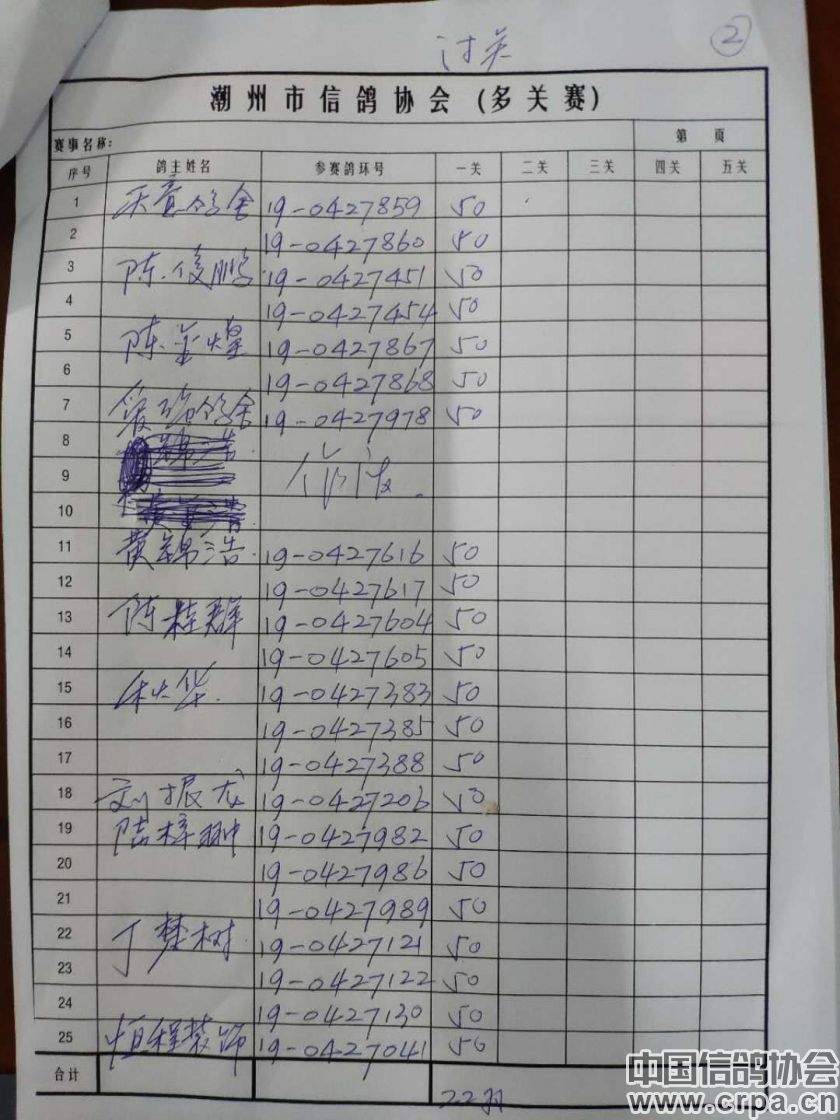 过关 ②
潮州市信鸽协会(多关赛)
赛事名称: 第 页
序号 鸽主姓名 参赛鸽环号 一关 二关 三关 四关 五关
1 天意鸽舍 19-0427859 50
2 19-0427860 50
3 陈俊鹏 19-0427451 50
4 19-0427454 50
5 陈金煌 19-0427867 50
6 19-0427868 50
7 鸽舍 19-0427978 50
8
9 作废
10
11 黄锦浩 19-0427616 50
12 19-0427617 50
13 陈桂群 19-0427604 50
14 19-0427605 50
15 华 19-0427383 50
16 19-0427385 50
17 19-0427388 50
18 刘振龙 19-0427206 50
19 陆梓翀 19-0427982 50
20 19-0427986 50
21 19-0427989 50
22 丁楚树 19-0427121 50
23 19-0427122 50
24 19-0427130 50
25 恒程装饰 19-0427041 50
合计 22羽
中国信鸽协会
www.crpa.cn